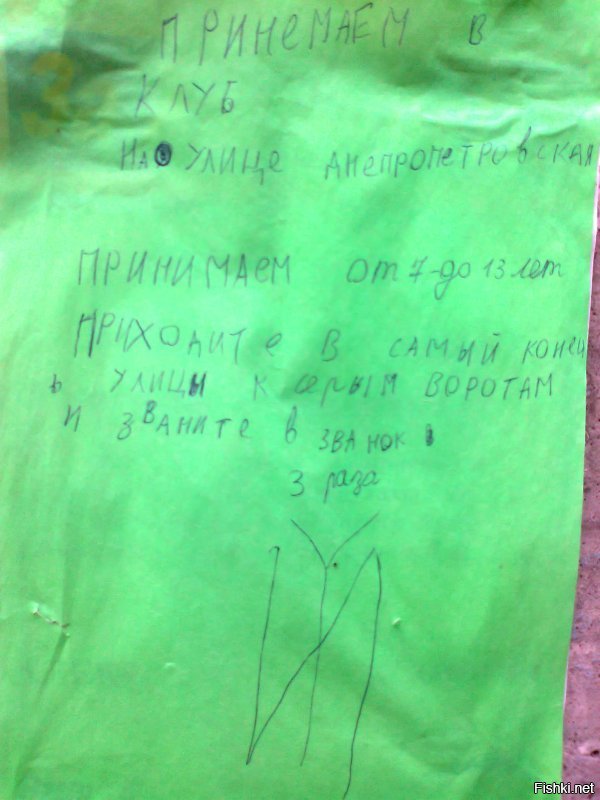 ПРИНЕМАЕМ В
КЛУБ
НА УЛИЦЕ ДНЕПРОПЕТРОВСКАЯ
ПРИНИМАЕМ ОТ 7-ДО 13 ЛЕТ
ПРИХОДИТЕ В САМЫЙ КОНЕЦ
УЛИЦЫ К СЕРЫМ ВОРОТАМ
И ЗВАНИТЕ В ЗВАНОК
3 РАЗА
Fishki.net